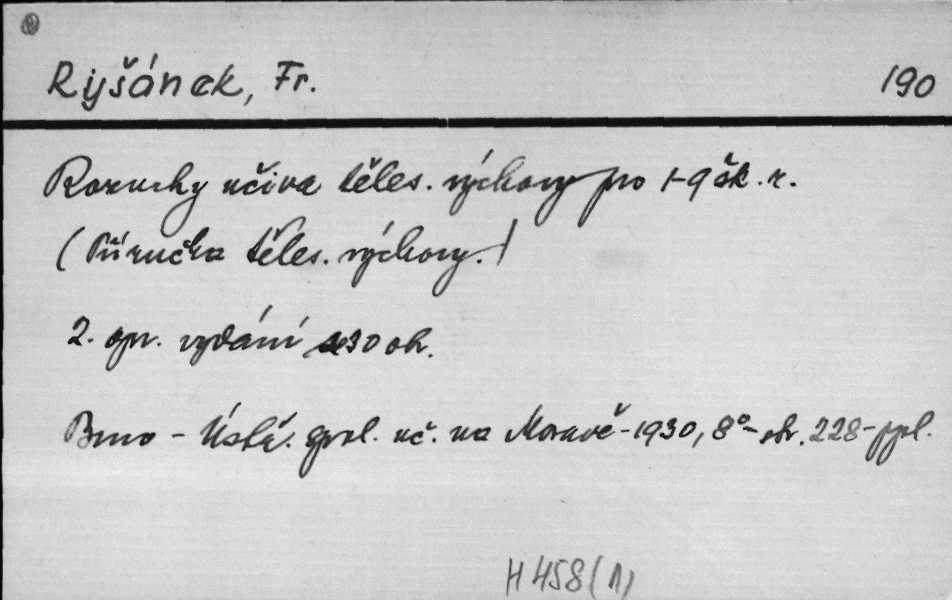 Ryšánek, Fr. 190
Rozvrhy učiva těles. výchovy pro 1-9 šk. r.
(Příručka těles. výchovy.)
2. opr. vydání 30 obr.
Brno - Ústř. spol. uč. na Moravě - 1930, 8° - obr. 228 - ppl.
H 458 (1)